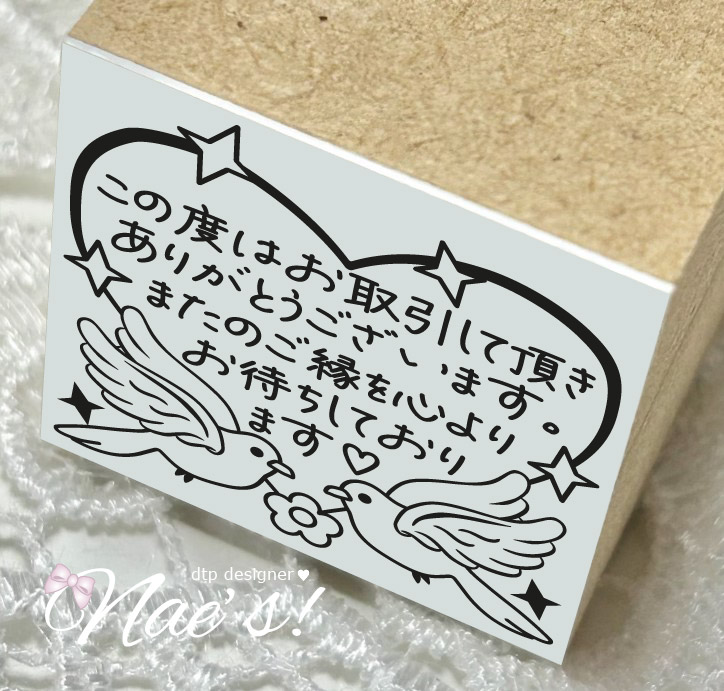 この度はお取引して頂き
ありがとうございます。
またのご縁を心より
お待ちしており
ます♡
dtp designer♥
Nae's!